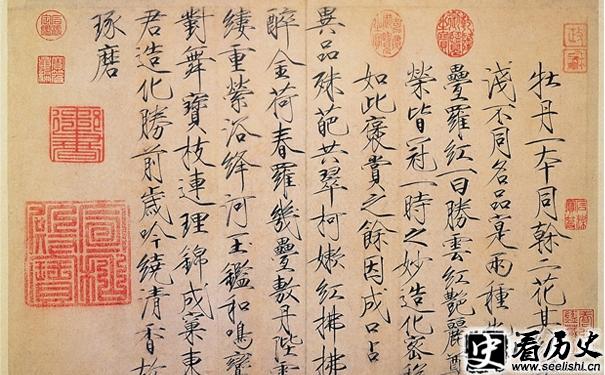 牡丹一本同幹二花其
淺不同名品寔兩種
疊羅紅一曰勝雲紅艷麗尊
榮皆冠一時之妙造化密移
如此褒賞之餘因成口占
異品殊葩共翠柯嫩紅拂拂
醉金荷春羅幾疊敷丹陛雲
縷重縈浴絳河玉鑑和鳴鸞
對舞寶枝連理錦成窠東
君造化勝前歲吟繞清香故
琢磨
看历史
www.seelishi.cn